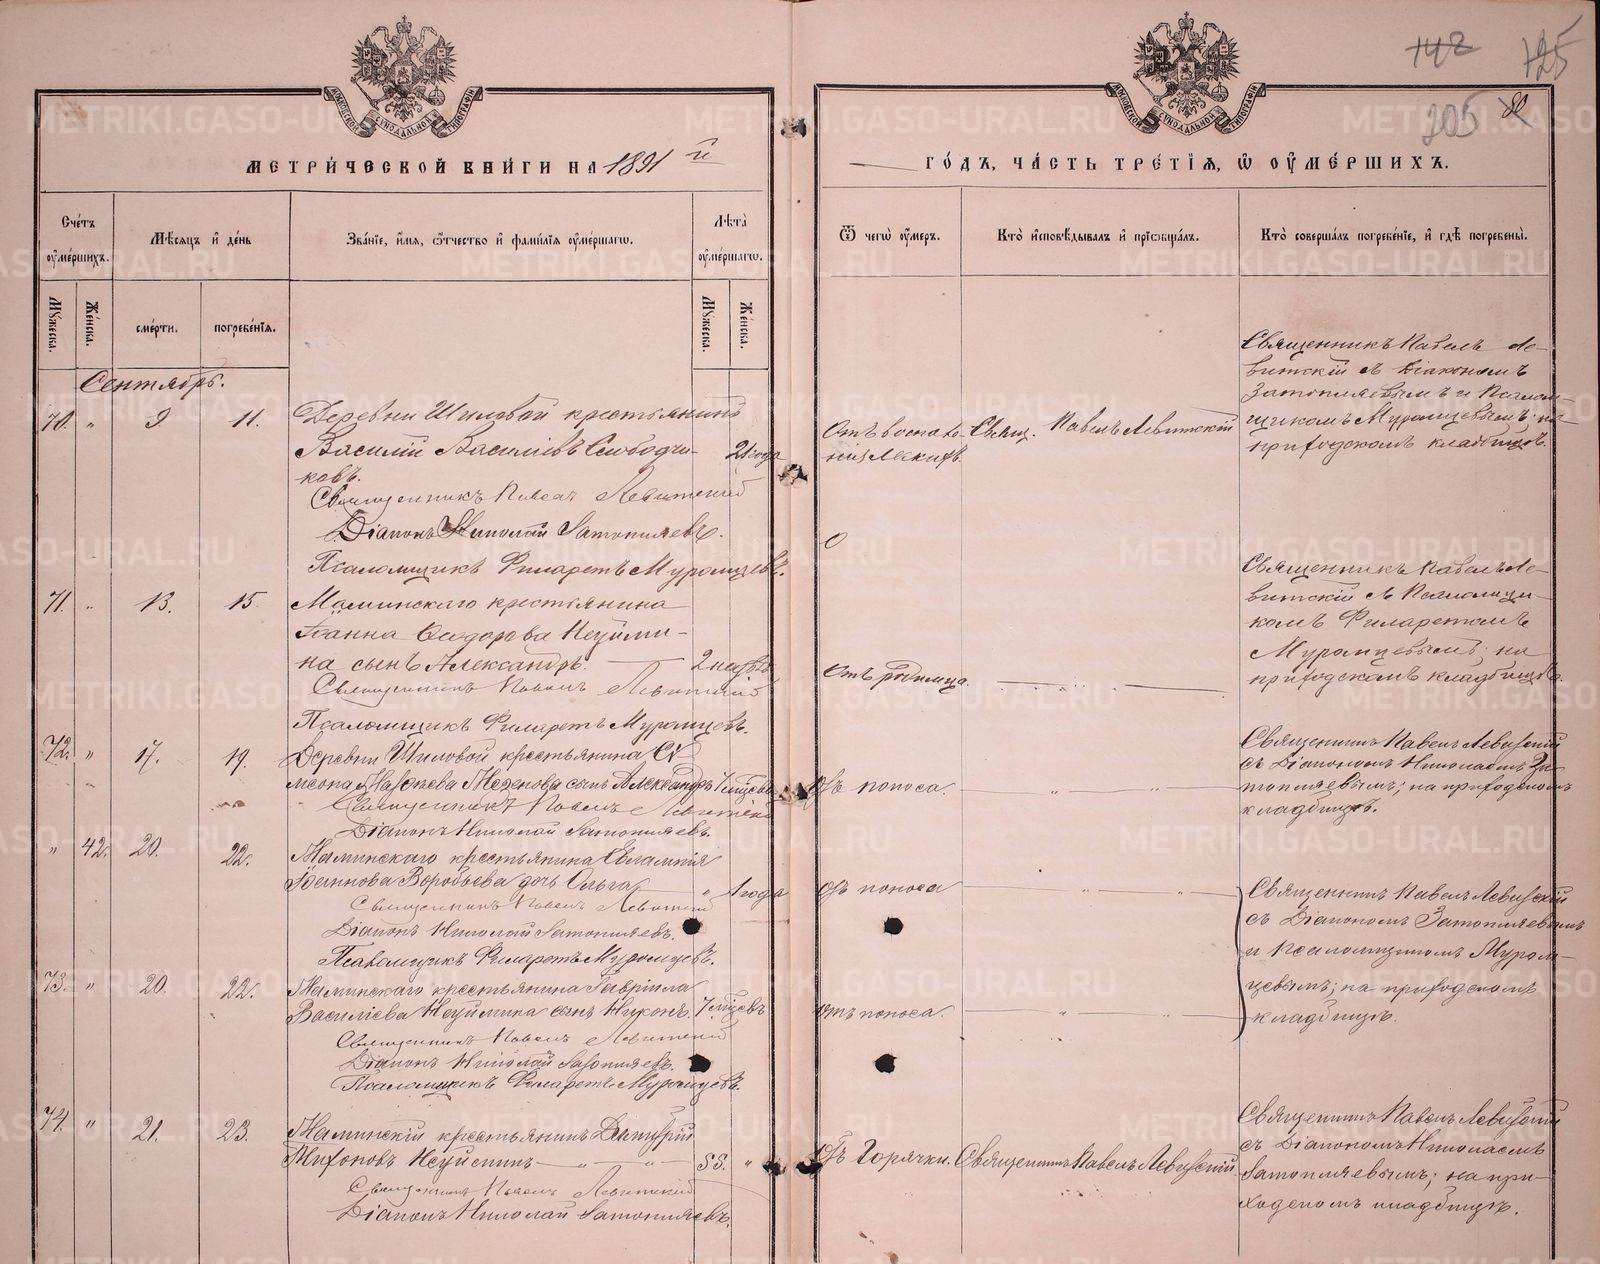 142 125
205 80
МЕТРИ́ЧЕСКОЙ КНИ́ГИ НА 1891 й
ГО́ДЪ, ЧА́СТЬ ТРЕ́ТІѦ, Ѡ ОУ҆МЕ́РШИХЪ.
Сче́тъ оу҆ме́ршихъ.
Мѣ́сяцъ и҆ де́нь
Зва́ніе, и҆́мя, ѻ҆́тчество и҆ фами́лія оу҆ме́ршагѡ.
Лѣ́та оу҆ме́ршагѡ.
Ѿ чегѡ̀ оу҆́меръ.
Кто̀ и҆сповѣ́дывалъ и҆ пріѡбща́лъ.
Кто̀ соверша́лъ погребе́ніе, и҆ гдѣ̀ погребены̀.
Му́жеска.
Же́нска.
сме́рти.
погребе́нія.
Му́жеска.
Же́нска.
Сентябрь.
70. " 9 11. Деревни Шиловой крестьянинъ
Василій Василіевъ Слободчи-
ковъ.
21 года
Священникъ Павелъ Левитскій
Діаконъ Николай Затопляевъ.
Псаломщикъ Филаретъ Муромцевъ.
Отъ воспале-
нія легкихъ.
Свящ. Павелъ Левитскій
Священникъ Павелъ Ле-
витскій съ Діакономъ
Затопляевымъ и Псалом-
щикомъ Муромцевымъ; на
приходскомъ кладбищѣ.
71. " 13. 15. Маминскаго крестьянина
Іоанна Сидорова Неуйми-
на сынъ Александръ.
2 недѣль
Священникъ Павелъ Левитскій
Псаломщикъ Филаретъ Муромцевъ.
Отъ родимца.
Священникъ Павелъ Ле-
витскій съ Псаломщи-
комъ Филаретомъ
Муромцевымъ; на
приходскомъ кладбищѣ.
72. " 17. 19. Деревни Шиловой крестьянина Си-
меона сынъ Александръ
7 мѣсяцевъ
Священникъ Павелъ Левитскій
Діаконъ Николай Затопляевъ.
Отъ поноса.
Священникъ Павелъ Левитскій
съ Діакономъ Николаемъ За-
топляевымъ; на приходскомъ
кладбищѣ.
" 42. 20. 22. Маминскаго крестьянина Евлампія
Іоаннова Воробьева дочь Ольга
" 1 года
Священникъ Павелъ Левитскій
Діаконъ Николай Затопляевъ.
Псаломщикъ Филаретъ Муромцевъ.
Отъ поноса
Священникъ Павелъ Левитскій
съ Діакономъ Затопляевымъ
и Псаломщикомъ Муром-
цевымъ; на приходскомъ
кладбищѣ.
73. " 20. 22. Маминскаго крестьянина Гавріила
Василіева Неуймина сынъ Никонъ.
7 мѣсяцевъ
Священникъ Павелъ Левитскій
Діаконъ Николай Затопляевъ.
Псаломщикъ Филаретъ Муромцевъ.
Отъ поноса.
74. " 21. 23. Маминскій крестьянинъ Димитрій
Тихоновъ Неуйминъ
55. "
Священникъ Павелъ Левитскій
Діаконъ Николай Затопляевъ.
Отъ горячки.
Священникъ Павелъ Левитскій.
Священникъ Павелъ Левитскій
съ Діакономъ Николаемъ
Затопляевымъ; на при-
ходскомъ кладбищѣ.
METRIKI.GASO-URAL.RU